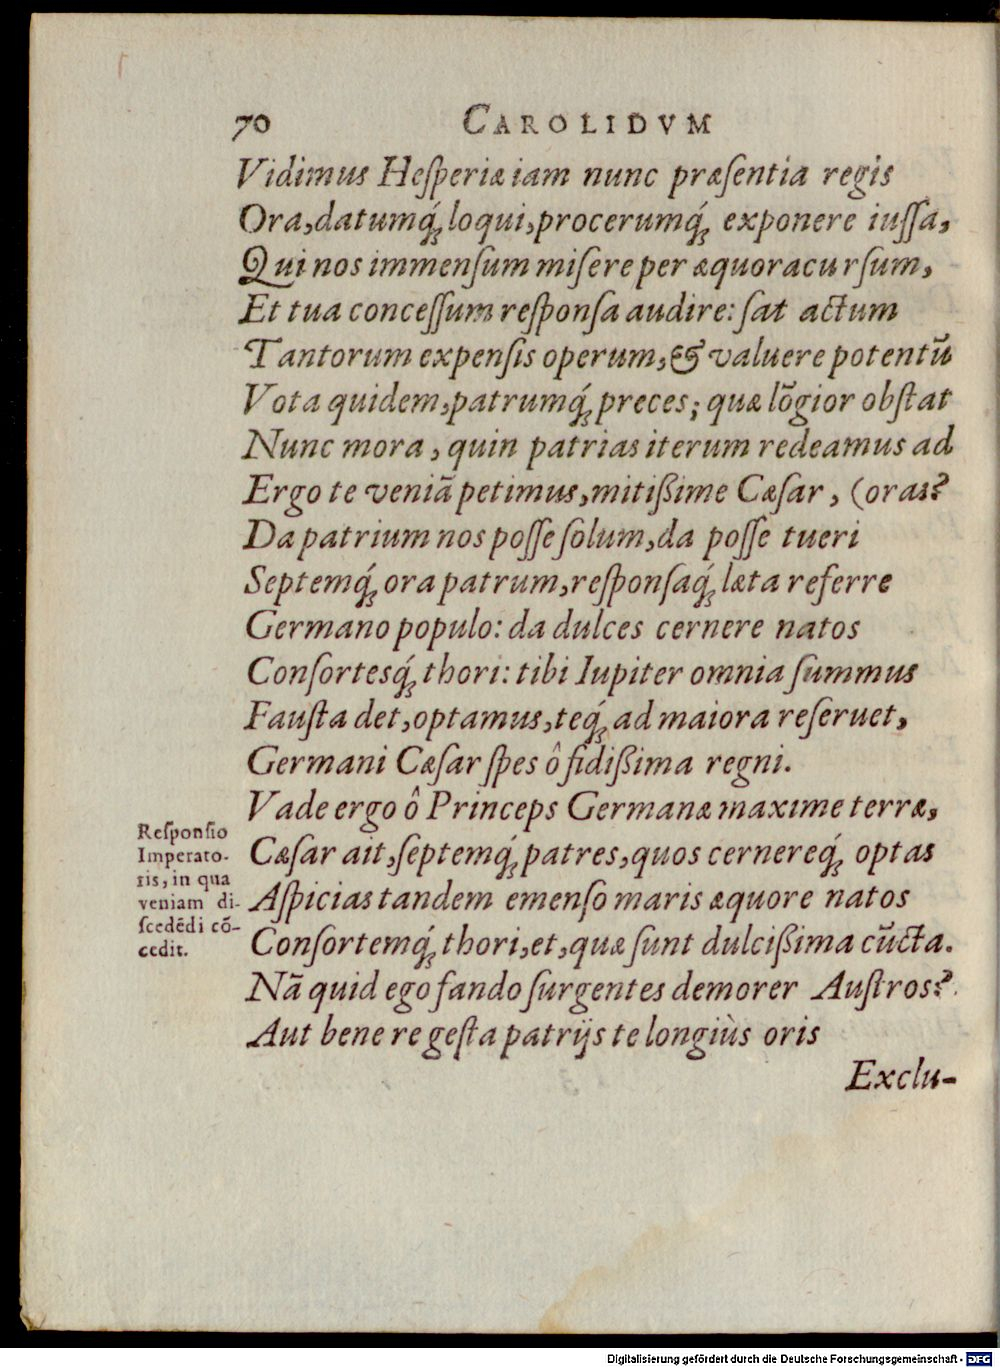 70 CAROLIDVM
Vidimus Heſperiæ iam nunc præſentia regis
Ora, datumq́ꝫ loqui, procerumq́ꝫ exponere iuſſa,
Qui nos immenſum miſere per æquora curſum,
Et tua conceſſum reſponſa audire: ſat actum
Tantorum expenſis operum, & valuere potentũ
Vota quidem, patrumq́ꝫ preces; quæ lõgior obſtat
Nunc mora, quin patrias iterum redeamus ad
Ergo te veniã petimus, mitißime Cæſar, (oras?
Da patrium nos poſſe ſolum, da poſſe tueri
Septemq́ꝫ ora patrum, reſponſaq́ꝫ læta referre
Germano populo: da dulces cernere natos
Conſortesq́ꝫ thori: tibi Iupiter omnia ſummus
Fauſta det, optamus, teq́ꝫ ad maiora reſeruet,
Germani Cæſar ſpes ô fidißima regni.
Vade ergo ô Princeps Germanæ maxime terræ,
Cæſar ait, ſeptemq́ꝫ patres, quos cernereq́ꝫ optas
Aſpicias tandem emenſo maris æquore natos
Conſortemq́ꝫ thori, et, quæ ſunt dulcißima cũcta.
Nã quid ego fando ſurgentes demorer Auſtros?
Aut bene re geſta patrijs te longiùs oris
Exclu-
Reſponſio
Imperato-
ris, in qua
veniam di-
ſcedẽdi cõ-
cedit.
Digitalisierung gefördert durch die Deutsche Forschungsgemeinschaft - DFG